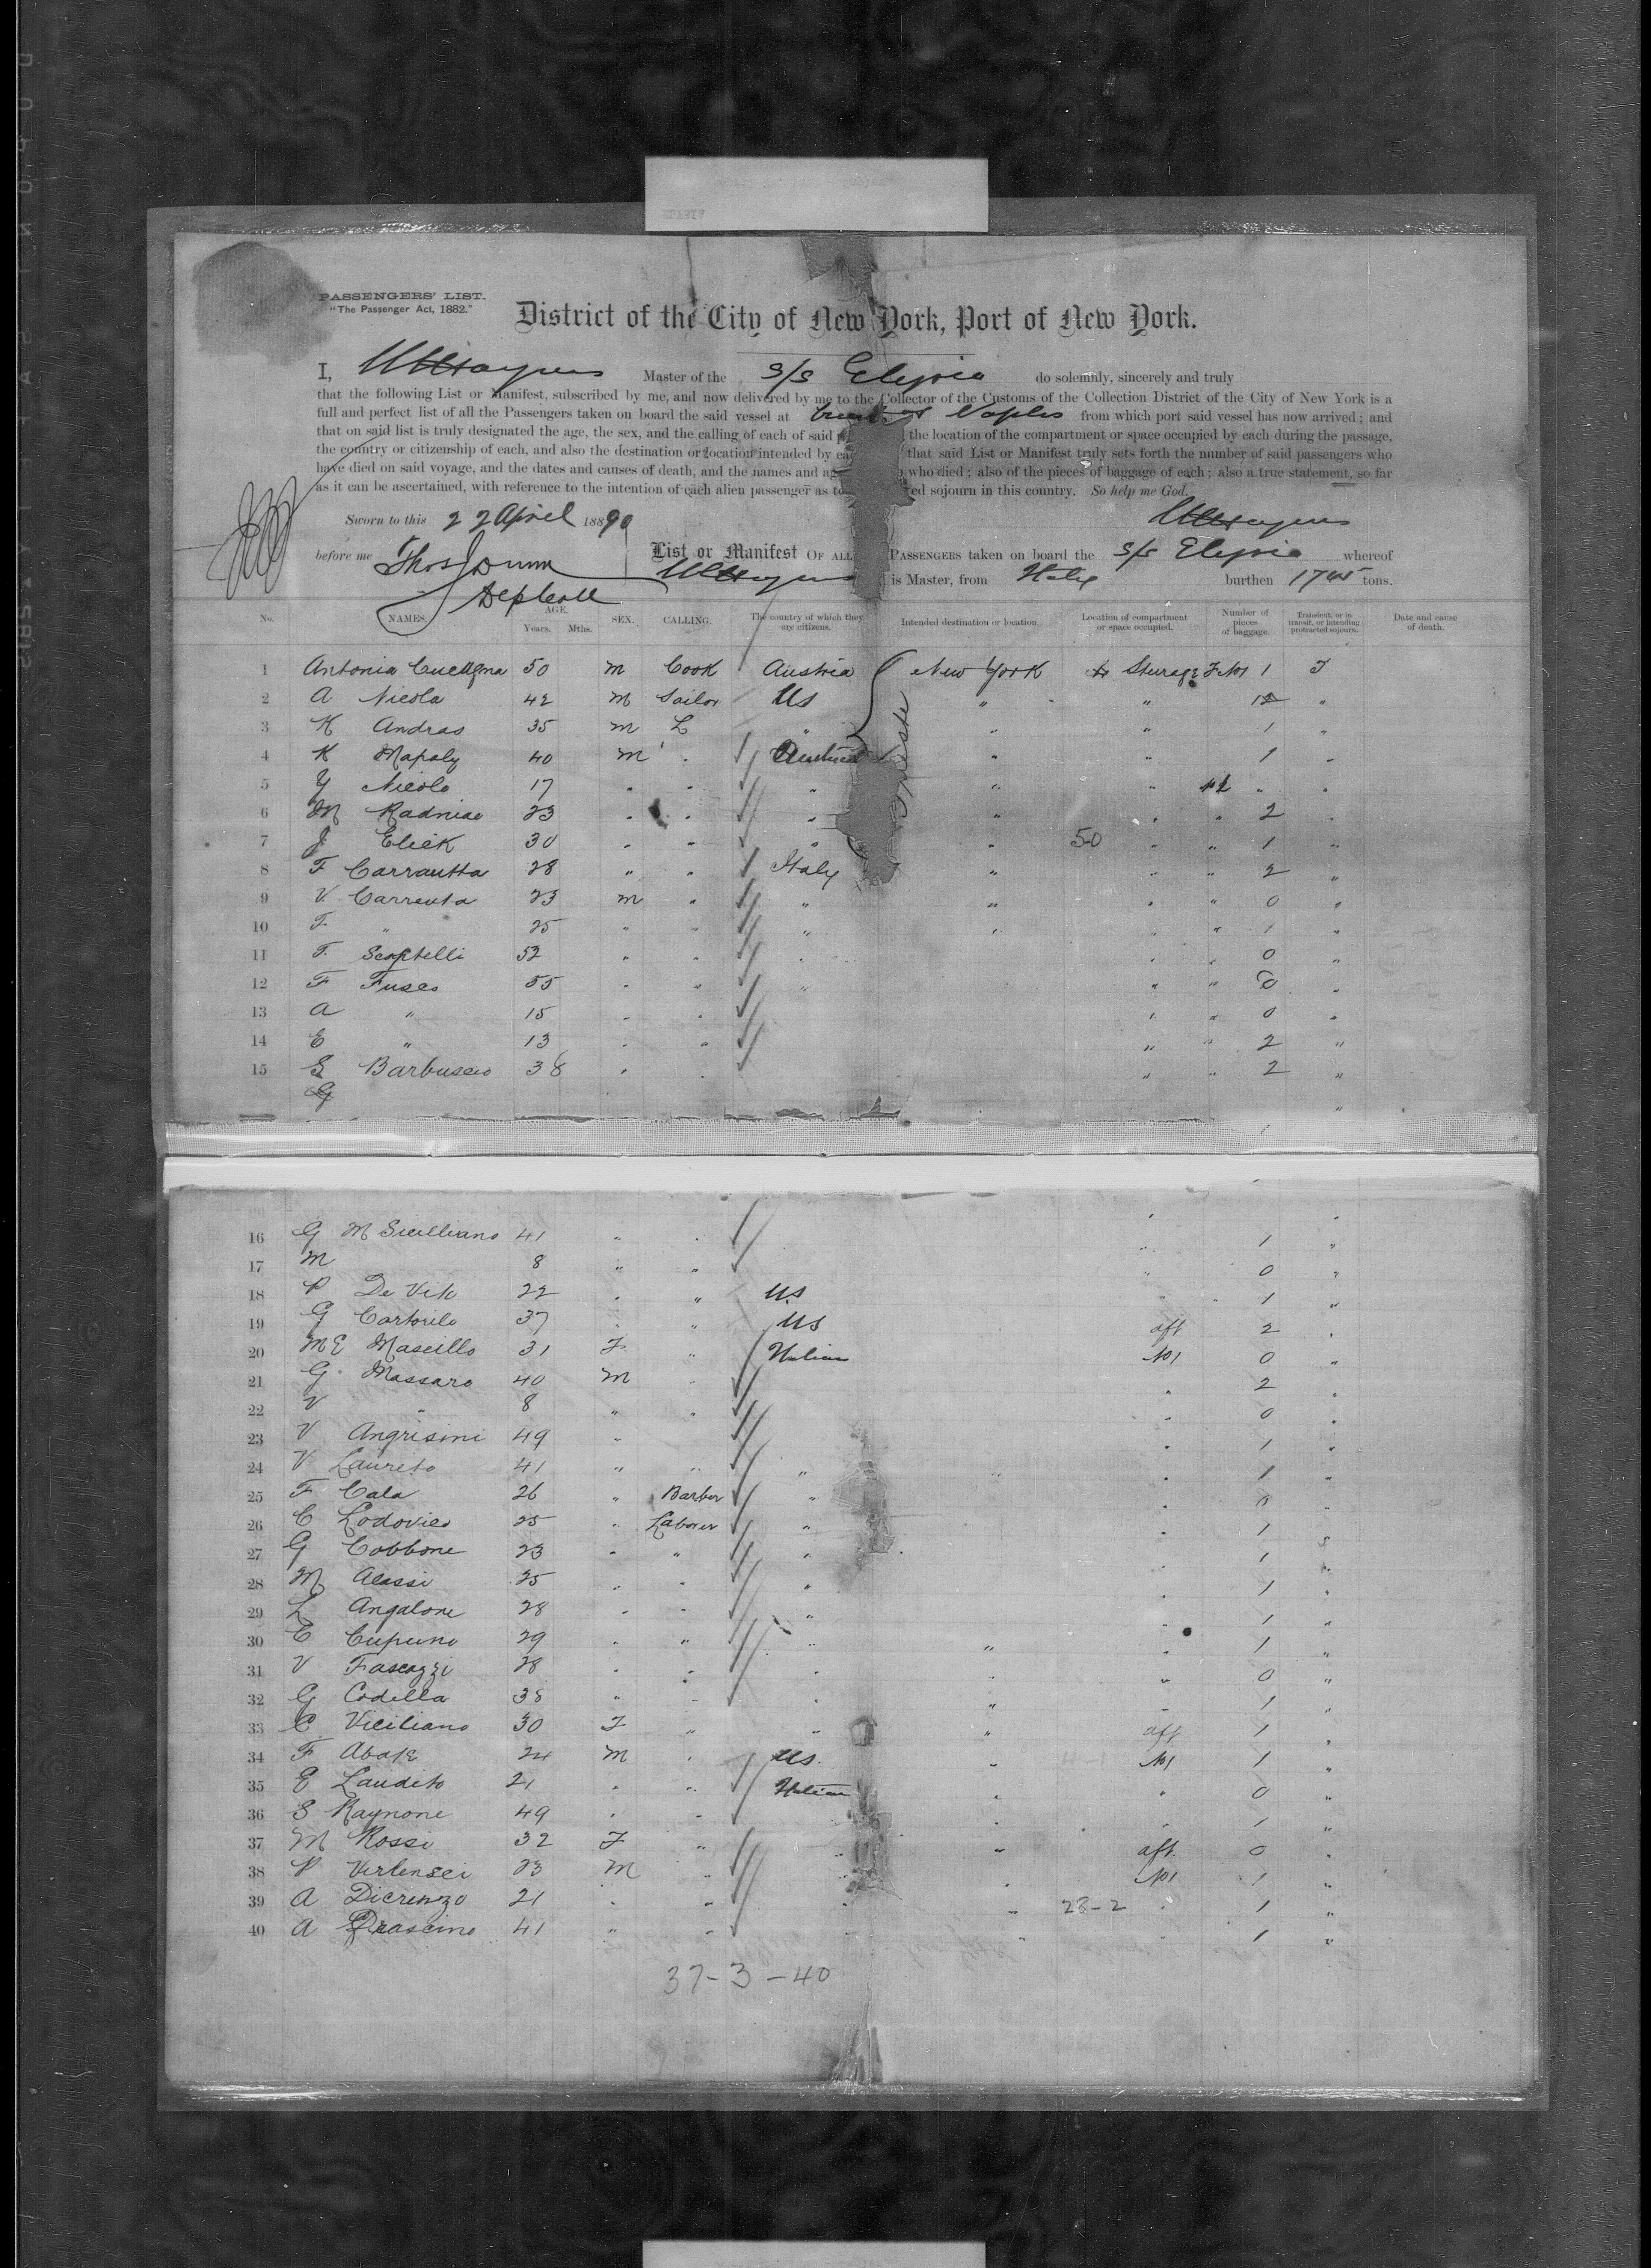 PASSENGERS' LIST.
"The Passenger Act, 1882."
District of the City of New York, Port of New York.
I, Master of the S/S Elysia do solemnly, sincerely and truly
that the following List or Manifest, subscribed by me, and now delivered by me to the Collector of the Customs of the Collection District of the City of New York is a
full and perfect list of all the Passengers taken on board the said vessel at Naples from which port said vessel has now arrived; and
that on said list is truly designated the age, the sex, and the calling of each of said the location of the compartment or space occupied by each during the passage,
the country or citizenship of each, and also the destination or location intended by that said List or Manifest truly sets forth the number of said passengers who
have died on said voyage, and the dates and causes of death, and the names and who died; also of the pieces of baggage of each; also a true statement, so far
as it can be ascertained, with reference to the intention of each alien passenger as to sojourn in this country. So help me God.
Sworn to this 22 April 1890
before me Thos J Dunn
List or Manifest OF ALL PASSENGERS taken on board the S/S Elysia whereof
is Master, from Italy burthen 1745 tons.
Dep Coll
No. NAMES. AGE. Years. Mths. SEX. CALLING. The country of which they are citizens. Intended destination or location. Location of compartment or space occupied. Number of pieces of baggage. Transient, or in transit, or intending protracted sojourn. Date and cause of death.
1 Antonia 50 m Cook Austria New York Sturage 1
2 A Nicola 42 m Sailor US " " "
3 K Andras 35 m L " " " 1 "
4 K Mapaly 40 m " Austria " " 1 "
5 Nicolo 17 " " " " " " "
6 M Radnise 23 " " " " " " 2 "
7 J Eliek 30 " " " " 50 " " 1 "
8 F Carrautta 28 " " Italy " " " 2 "
9 V Carreuta 23 m " " " " " 0 "
10 F " 25 " " " " " " 1 "
11 F Scaptelli 52 " " " " " 0 "
12 F Fusco 55 " " " " " 0 "
13 A " 15 " " " " 0 "
14 E " 13 " " " " 2 "
15 Barbuscio 38 " " " " 2 "
G
16 G M Sicilliano 41 " " " 1 "
17 M 8 " " " 0 "
18 P De Vito 22 " " US " 1 "
19 G Cartorilo 37 " " US aft 2 "
20 ME Mascillo 31 F " Italian No1 0 "
21 G Massaro 40 M " " 2 "
22 V " 8 " " " 0 "
23 V Angrisini 49 " " 1 "
24 V Laureto 41 " " " " " 1 "
25 F Cala 26 " Barber " " 0 "
26 C Lodovico 25 " Laborer " " 1
27 G Cobbone 23 " " " " 1 "
28 M Alassi 25 " " " " 1 "
29 L Angalone 28 " " " " 1 "
30 C Cupuno 29 " " " " " 1 "
31 V Fascazzi 28 " " " " " 0 "
32 G Codella 38 " " " " " 1 "
33 C Viciliano 30 F " " " aft 1 "
34 F Abate 24 M " US. " No1 1 "
35 E Laudito 21 " " Italian " " 0 "
36 S Raynone 49 " " " " 1 "
37 M Rossi 32 F " " " aft. 0 "
38 P Virlensei 23 M " " No1 1 "
39 A Dicrenzo 21 " " " " 28-2 " 1 "
40 A 41 " " " " 1 "
37-3-40